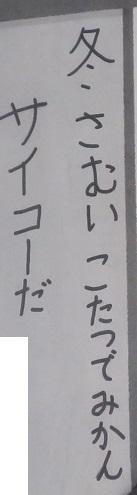 冬さむい こたつでみかん
サイコーだ